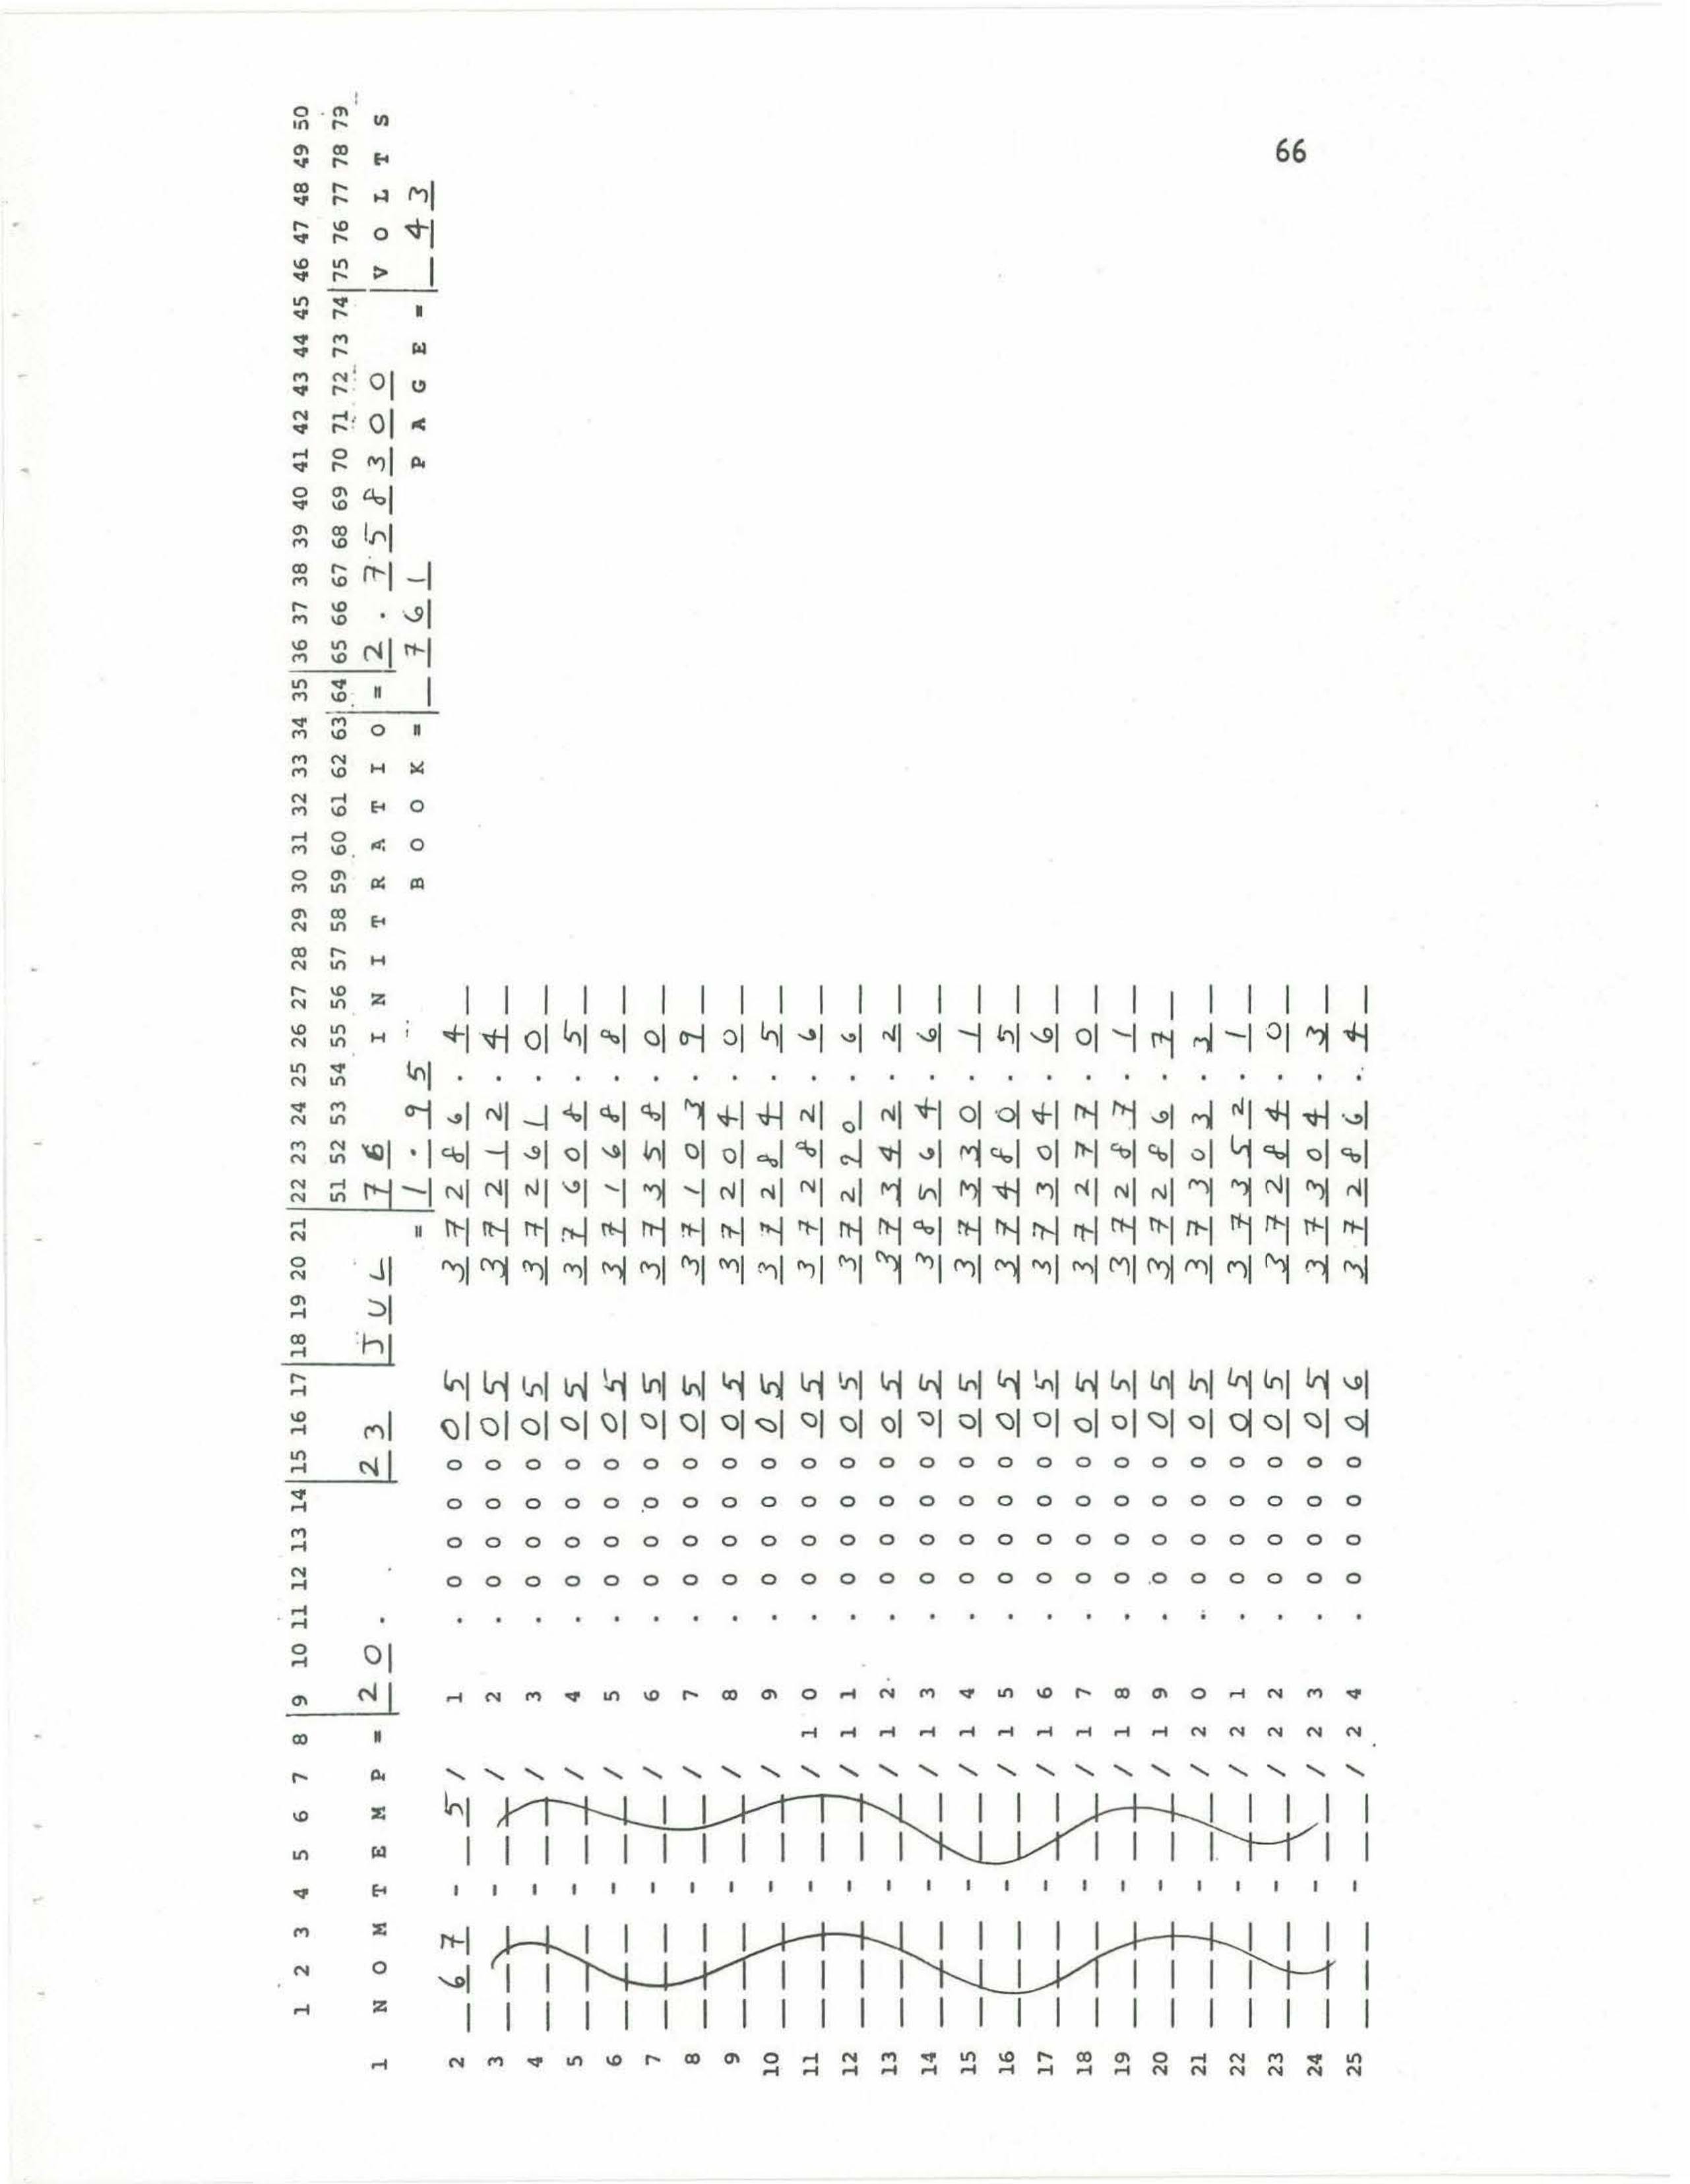 1 2 3 4 5 6 7 8 9 10 11 12 13 14 15 16 17 18 19 20 21 22 23 24 25 26 27 28 29 30 31 32 33 34 35 36 37 38 39 40 41 42 43 44 45 46 47 48 49 50
51 52 53 54 55 56 57 58 59 60 61 62 63 64 65 66 67 68 69 70 71 72 73 74 75 76 77 78 79
1 N O M T E M P = 2 0 . 2 3 J U L 7 6 I N I T R A T I O = 2 . 7 5 8 3 0 0 V O L T S
= 1 . 9 5 B O O K = _ 7 6 1 P A G E = _ 4 3
2 _ 6 7 - _ 5 / 1 . 0 0 0 0 0 5 3 7 2 8 6 . 4 _
3 _ _ _ - _ _ / 2 . 0 0 0 0 0 5 3 7 2 1 2 . 4 _
4 _ _ _ - _ _ / 3 . 0 0 0 0 0 5 3 7 2 6 1 . 0 _
5 _ _ _ - _ _ / 4 . 0 0 0 0 0 5 3 7 6 0 8 . 5 _
6 _ _ _ - _ _ / 5 . 0 0 0 0 0 5 3 7 1 6 8 . 8 _
7 _ _ _ - _ _ / 6 . 0 0 0 0 0 5 3 7 3 5 8 . 0 _
8 _ _ _ - _ _ / 7 . 0 0 0 0 0 5 3 7 1 0 3 . 9 _
9 _ _ _ - _ _ / 8 . 0 0 0 0 0 5 3 7 2 0 4 . 0 _
10 _ _ _ - _ _ / 9 . 0 0 0 0 0 5 3 7 2 8 4 . 5 _
11 _ _ _ - _ _ / 1 0 . 0 0 0 0 0 5 3 7 2 8 2 . 6 _
12 _ _ _ - _ _ / 1 1 . 0 0 0 0 0 5 3 7 2 2 0 . 6 _
13 _ _ _ - _ _ / 1 2 . 0 0 0 0 0 5 3 7 3 4 2 . 2 _
14 _ _ _ - _ _ / 1 3 . 0 0 0 0 0 5 3 8 5 6 4 . 6 _
15 _ _ _ - _ _ / 1 4 . 0 0 0 0 0 5 3 7 3 3 0 . 1 _
16 _ _ _ - _ _ / 1 5 . 0 0 0 0 0 5 3 7 4 8 0 . 5 _
17 _ _ _ - _ _ / 1 6 . 0 0 0 0 0 5 3 7 3 0 4 . 6 _
18 _ _ _ - _ _ / 1 7 . 0 0 0 0 0 5 3 7 2 7 7 . 0 _
19 _ _ _ - _ _ / 1 8 . 0 0 0 0 0 5 3 7 2 8 7 . 1 _
20 _ _ _ - _ _ / 1 9 . 0 0 0 0 0 5 3 7 2 8 6 . 7 _
21 _ _ _ - _ _ / 2 0 . 0 0 0 0 0 5 3 7 3 0 3 . 3 _
22 _ _ _ - _ _ / 2 1 . 0 0 0 0 0 5 3 7 3 5 2 . 1 _
23 _ _ _ - _ _ / 2 2 . 0 0 0 0 0 5 3 7 2 8 4 . 0 _
24 _ _ _ - _ _ / 2 3 . 0 0 0 0 0 5 3 7 3 0 4 . 3 _
25 _ _ _ - _ _ / 2 4 . 0 0 0 0 0 6 3 7 2 8 6 . 4 _
66